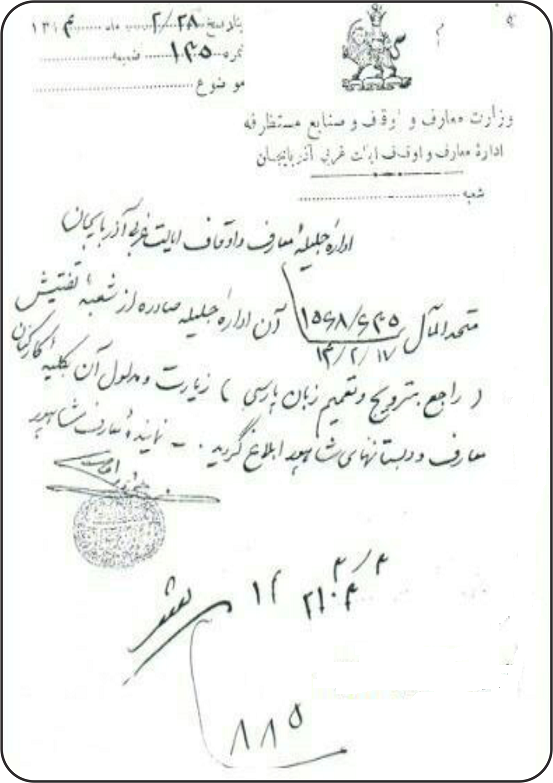 بتاریخ ۲۸/۲ ماه ۱۳۱۴
نمره ۱۳۵ ضمیمه
موضوع
وزارت معارف و اوقاف و صنایع مستظرفه
ادارهٔ معارف و اوقاف ایالت غربی آذربایجان
شعبه
ادارهٔ جلیلهٔ معارف و اوقاف ایالت غربی آذربایجان
متحدالمآل ۱۵۶۸/۶۳۵ آن ادارهٔ جلیله صادره از شعبهٔ تفتیش
۱۴/۲/۱۷
( راجع بترویج و تعمیم زبان پارسی ) زیارت و مدلول آن بکلیهٔ کارکنان
معارف و دبستانهای شاهپور ابلاغ گردید . ـ نمایندهٔ معارف شاهپور
۳/۴
۲۱۰۴
۱۴
۸۸۵